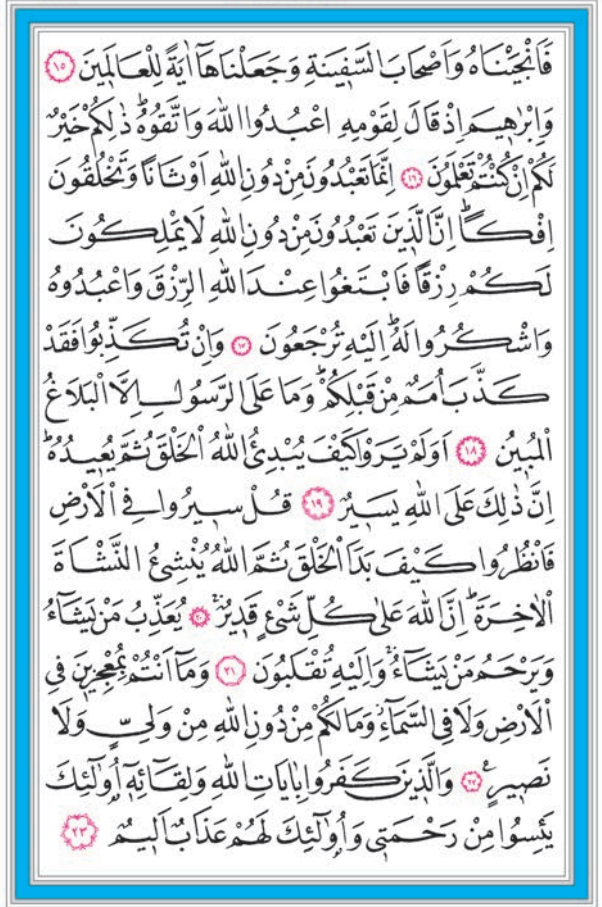 فَاَنْجَيْنَاهُ وَاَصْحَابَ السَّفٖينَةِ وَجَعَلْنَاهَٓا اٰيَةً لِلْعَالَمٖينَ ﴿١٥﴾
وَاِبْرٰهٖيمَ اِذْ قَالَ لِقَوْمِهِ اعْبُدُوا اللّٰهَ وَاتَّقُوهُؕ ذٰلِكُمْ خَيْرٌ
لَكُمْ اِنْ كُنْتُمْ تَعْلَمُونَ ﴿١٦﴾ اِنَّمَا تَعْبُدُونَ مِنْ دُونِ اللّٰهِ اَوْثَانًا وَتَخْلُقُونَ
اِفْكًاؕ اِنَّ الَّذٖينَ تَعْبُدُونَ مِنْ دُونِ اللّٰهِ لَا يَمْلِكُونَ
لَكُمْ رِزْقًا فَابْتَغُوا عِنْدَ اللّٰهِ الرِّزْقَ وَاعْبُدُوهُ
وَاشْكُرُوا لَهُؕ اِلَيْهِ تُرْجَعُونَ ﴿١٧﴾ وَاِنْ تُكَذِّبُوا فَقَدْ
كَذَّبَ اُمَمٌ مِنْ قَبْلِكُمْؕ وَمَا عَلَى الرَّسُولِ اِلَّا الْبَلَاغُ
الْمُبٖينُ ﴿١٨﴾ اَوَلَمْ يَرَوْا كَيْفَ يُبْدِئُ اللّٰهُ الْخَلْقَ ثُمَّ يُعٖيدُهُؕ
اِنَّ ذٰلِكَ عَلَى اللّٰهِ يَسٖيرٌ ﴿١٩﴾ قُلْ سٖيرُوا فِي الْاَرْضِ
فَانْظُرُوا كَيْفَ بَدَاَ الْخَلْقَ ثُمَّ اللّٰهُ يُنْشِئُ النَّشْاَةَ
الْاٰخِرَةَؕ اِنَّ اللّٰهَ عَلٰى كُلِّ شَيْءٍ قَدٖيرٌۚ ﴿٢٠﴾ يُعَذِّبُ مَنْ يَشَٓاءُ
وَيَرْحَمُ مَنْ يَشَٓاءُۚ وَاِلَيْهِ تُقْلَبُونَ ﴿٢١﴾ وَمَٓا اَنْتُمْ بِمُعْجِزٖينَ فِي
الْاَرْضِ وَلَا فِي السَّمَٓاءِۘ وَمَا لَكُمْ مِنْ دُونِ اللّٰهِ مِنْ وَلِيٍّ وَلَا
نَصٖيرٍࣖ ﴿٢٢﴾ وَالَّذٖينَ كَفَرُوا بِاٰيَاتِ اللّٰهِ وَلِقَٓائِهٖٓ اُو۬لٰٓئِكَ
يَئِسُوا مِنْ رَحْمَتٖي وَاُو۬لٰٓئِكَ لَهُمْ عَذَابٌ اَلٖيمٌ ﴿٢٣﴾